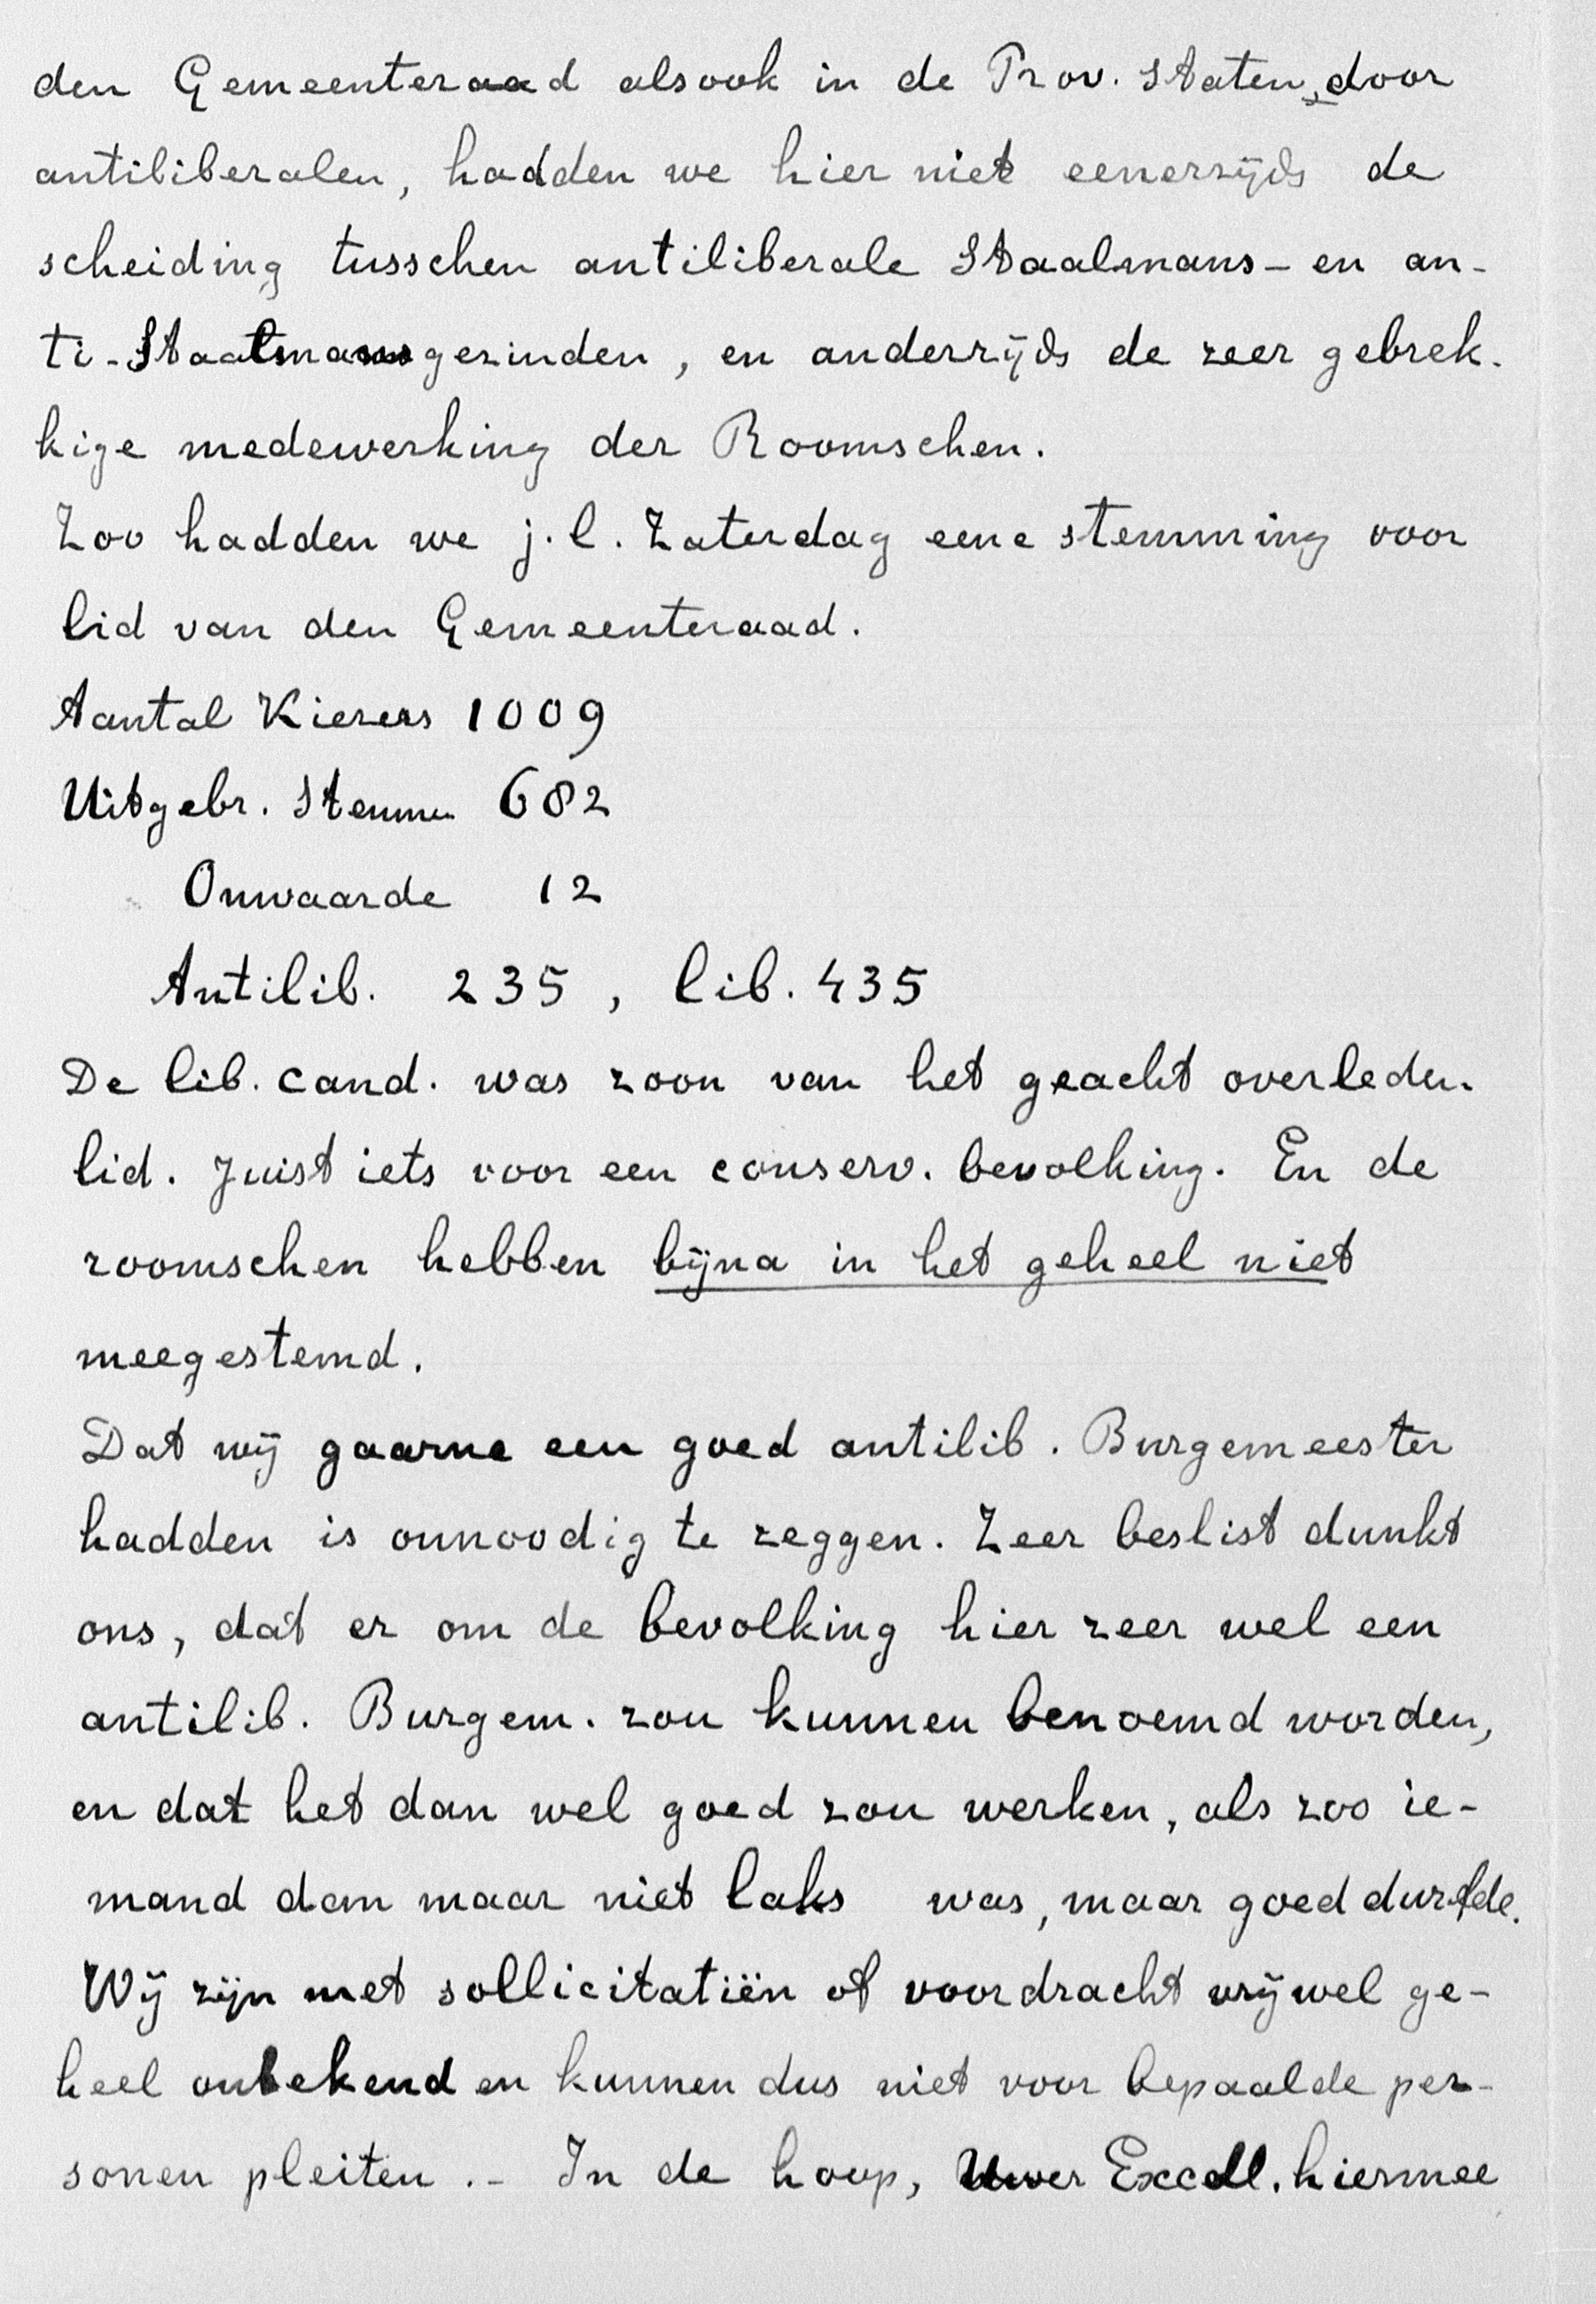 den Gemeenteraad alsook in de Prov. Staten, door
antiliberalen, hadden we hier niet eenerzijds de
scheiding tusschen antiliberale Staalmans- en an-
ti-Staalmansgezinden, en anderzijds de zeer gebrek-
kige medewerking der Roomschen.
Zoo hadden we j.l. Zaterdag eene stemming voor
lid van den Gemeenteraad.
Aantal Kiezers 1009
Uitgebr. Stemmen 682
Onwaarde 12
Antilib. 235, lib. 435
De lib. cand. was zoon van het geacht overleden
lid. Juist iets voor een conserv. bevolking. En de
roomschen hebben bijna in het geheel niet
meegestemd.
Dat wij gaarne een goed antilib. Burgemeester
hadden is onnoodig te zeggen. Zeer beslist dunkt
ons, dat er om de bevolking hier zeer wel een
antilib. Burgem. zou kunnen benoemd worden,
en dat het dan wel goed zou werken, als zoo ie-
mand dan maar niet laks was, maar goed durfde.
Wij zijn met sollicitatiën of voordracht vrijwel ge-
heel onbekend en kunnen dus niet voor bepaalde per-
sonen pleiten.- In de hoop, Uwer Excell. hiermee